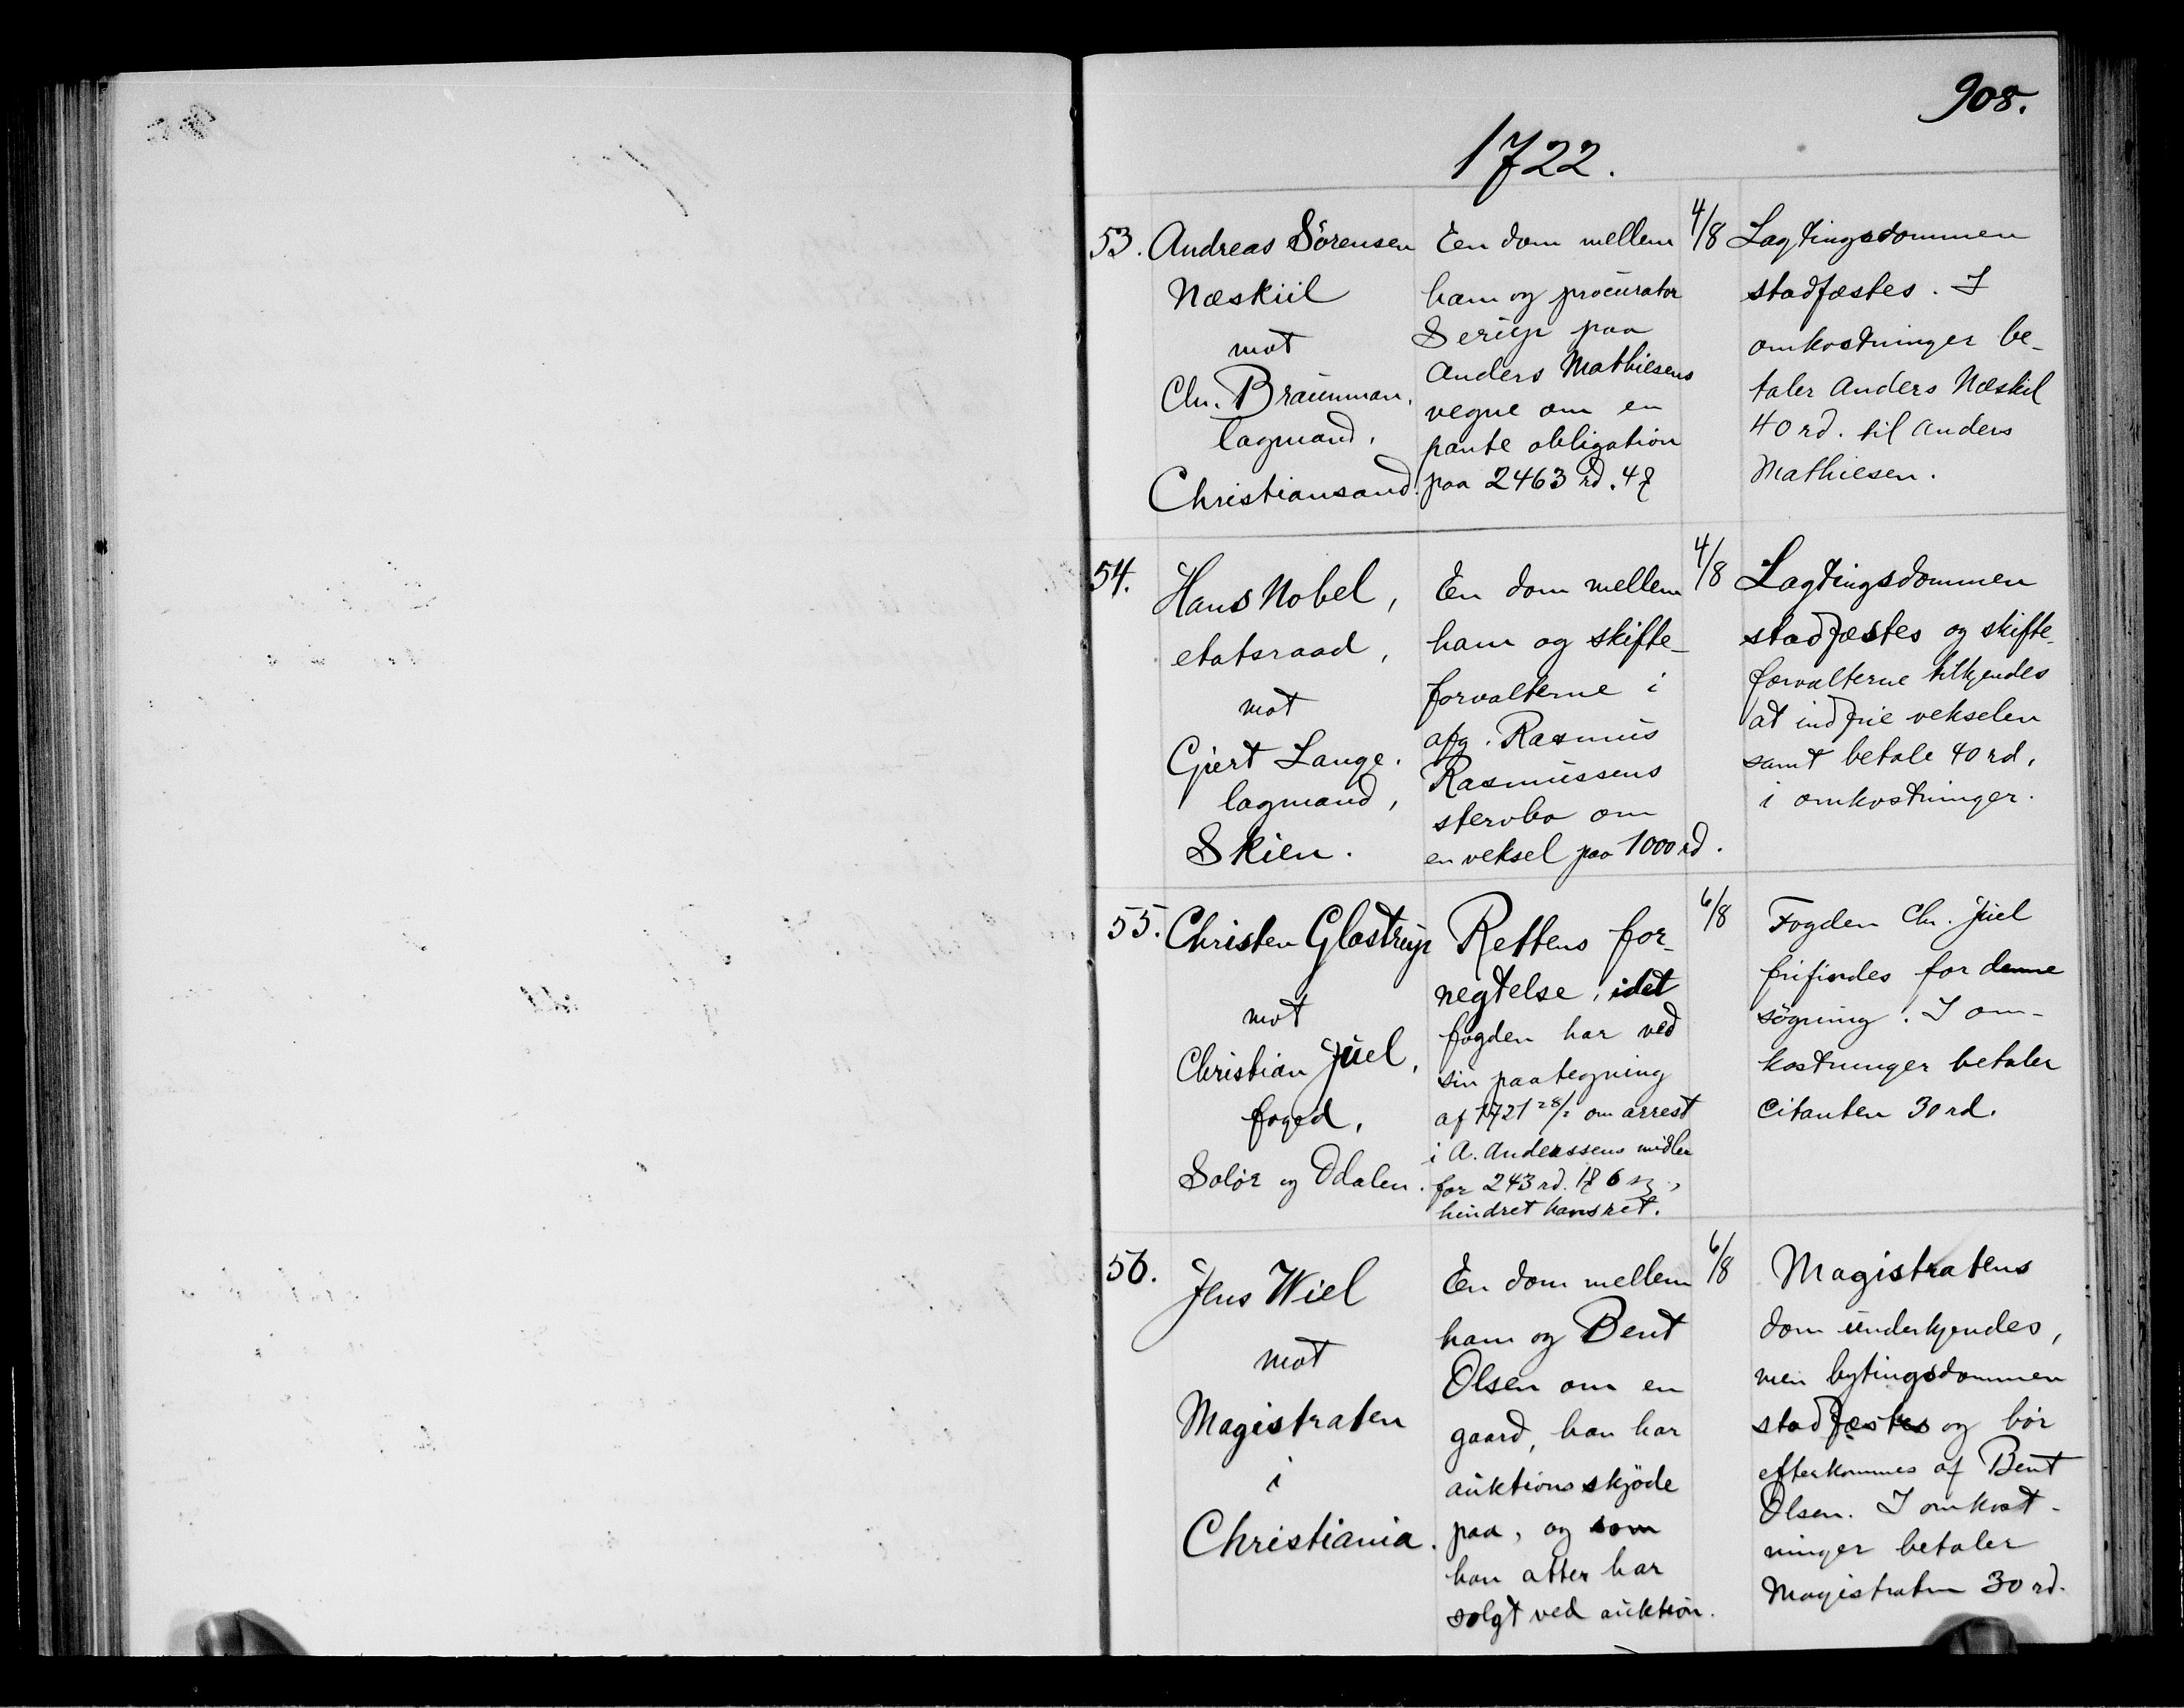 908.
1722.
53. Andreas Sörensen
Næskiil
mot
Chr. Braunman,
lagmand,
Christiansand.
En dom mellem
ham og procurator
Serup paa
Anders Mathiesens
vegne om en
pante obligation
paa 2463 rd. 4
4/8 Lagtingsdommen
stadfæstes. I
omkostninger be-
taler Anders Næskil
40 rd. til Anders
Mathiesen.
54. Hans Nobel,
etatsraad,
mot
Gjert Lange.
lagmand,
Skien.
En dom mellem
ham og skifte-
forvalterne i
afg. Rasmus
Rasmussens
stervbo om
en veksel paa 1000 rd.
4/8 Lagtingsdommen
stadfæstes og skifte-
forvalterne tilkjendes
at indfrie vekselen
samt betale 40 rd.
i omkostninger.
55. Christen Glostrup
mot
Christian Juel,
foged,
Solör og Odalen.
Rettens for-
negtelse, idet
fogden har ved
sin paategning
af 1721 28/2 om arrest
i A. Anderssens midler
for 243 rd. 1 6
hindret hans ret.
6/8 Fogden Chr. Juel
frifindes for denne
sögning. I om-
kostninger betaler
Citanten 30 rd.
56. Jens Wiel
mot
Magistraten
i
Christiania.
En dom mellem
ham og Bent
Olsen om en
gaard, han har
auktionsskjöde
paa, og som
han atter har
solgt ved auktion.
6/8 Magistratens
dom underkjendes,
men bytingsdommen
stadfæstes og bör
efterkommes af Bent
Olsen. I omkost-
ninger betaler
Magistraten 30 rd.